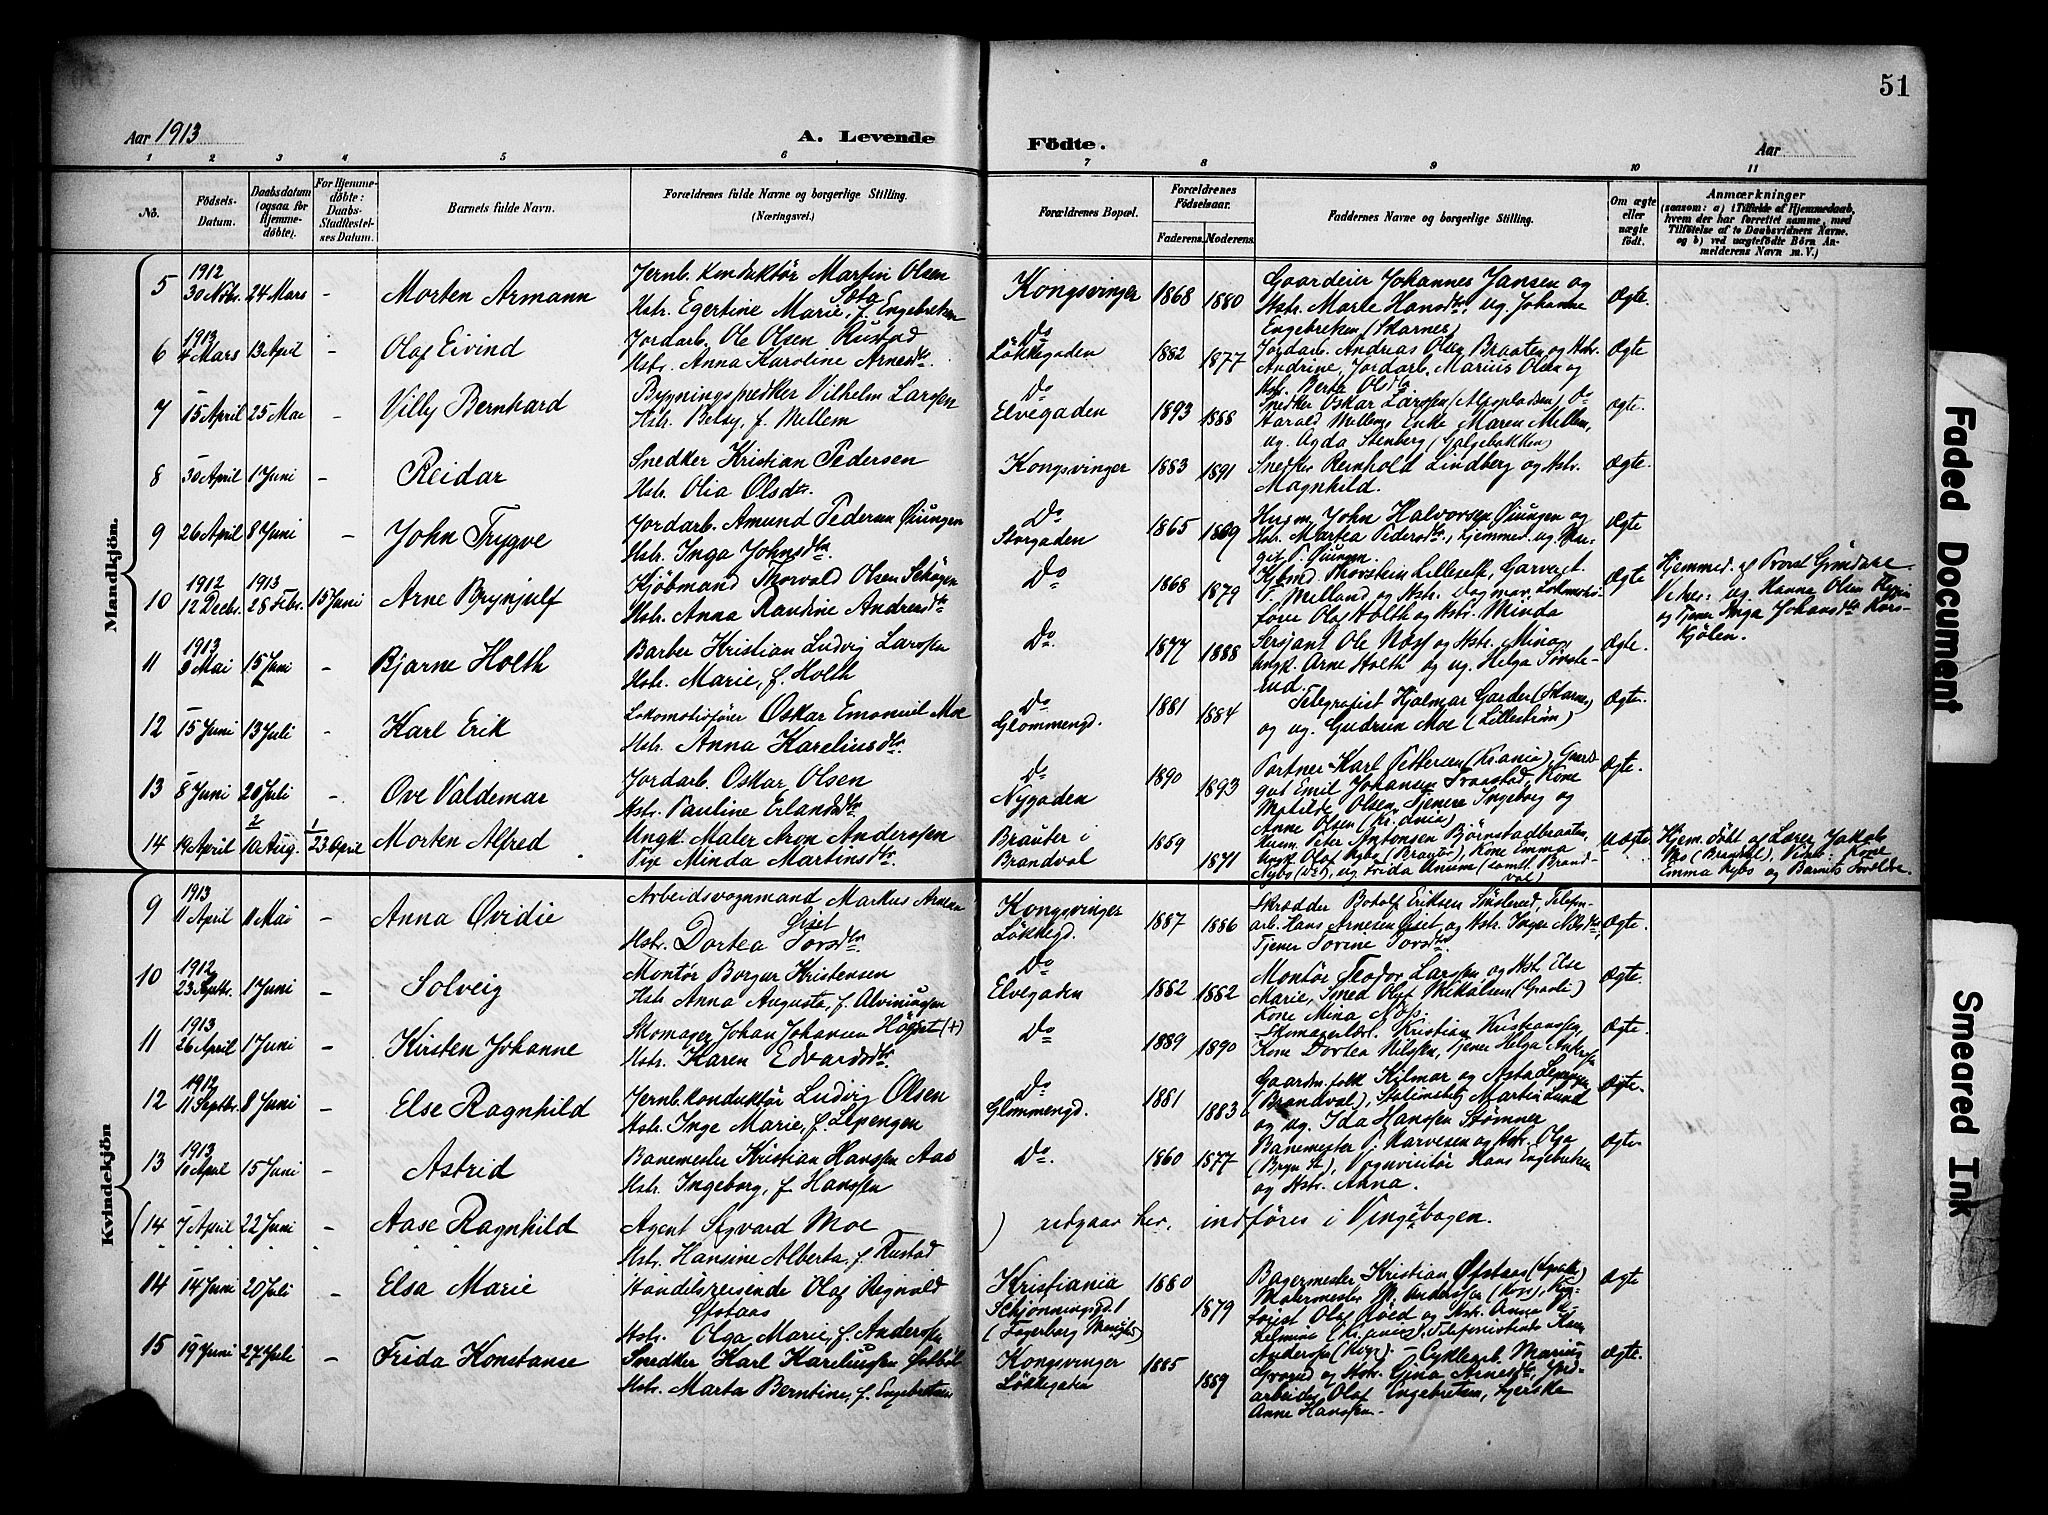 51
Aar 1913
A. Levende
Födte.
Aar
1 2 3 4 5 6 7 8 9 10 11
No.
Födsels-Datum.
Daabsdatum (ogsaa for Hjemmedöbte).
For Hjemmedöbte: Daabs-Stadfæstelses Datum.
Barnets fulde Navn.
Forældrenes fulde Navne og borgerlige Stilling. (Næringsvei.)
Forældrenes Bopæl.
Forældrenes Födselsaar.
Faderens. Moderens.
Faddernes Navne og borgerlige Stilling.
Om ægte eller uægte födt.
Anmærkninger
(saasom: a) i Tilfælde af Hjemmedaab, hvem der har forrettet samme, med Tilföielse af to Daabsvidners Navne. og b) ved uægtefödte Börn Anmelderens Navn m. V.)
Mandkjön.
5 1912 30 Nobr. 24 Mars - Morten Armann
Jernb. konduktör Martin Olsen Sæta
Hstr. Egertine Marie, f. Engebretsen
Kongsvinger 1868 1880
Gaardeier Johannes Jansen og
Hstr. Marte Hansdtr, ug. Johanne
Engebretsen (Skarnes)
Ægte.
6 1913 4 Mars 13 April - Olaf Eivind
Jordarb. Ole Olsen Rustad
Hstr. Anna Karoline Arnesdtr.
Do Løkkegaden 1882 1877
Jordarb. Andreas Olsen Braaten og Hstr.
Andrine, Jordarb. Marius Olsen og
Hstr. Berte Olsdtr
Ægte.
7 15 April 25 Mai - Villy Bernhard
Bygningssnedker Vilhelm Larssen
Hstr. Betsy, f. Mellem
Do Elvegaden 1893 1888
Snedker Oskar Larssen
Harald Mellems Enke Maren Mellem,
ug. Agda Stenberg (Galgebakken)
Ægte.
8 30 April 1 Juni - Reidar
Snedker Kristian Pedersen
Hstr. Olia Olsdtr.
Kongsvinger 1883 1891
Snedker Reinhold Lindberg og Hstr.
Magnhild.
Ægte.
9 26 April 8 Juni - John Trygve
Jordarb. Amund Pedersen Øiungen
Hstr. Inga Johnsdtr
Do Storgaden 1865 1869
Husm. John Halvorsen Øiungen og
Hstr. Martea Pedersdtr., hjemmev. ug.
P. Øiungen.
Ægte
10 1912 12 Decbr. 1913 28 Febr. 15 Juni Arne Brynjulf
Kjöbmand Thorvald Olsen
Hstr. Anna Randine Andreasdtr
Do 1868 1879
Kjbmd. Thorstein Lilleseth, Garver
P. Melland og Hstr. Dagmar, Lokomotivförer Olaf Holth og Hstr. Minda
Ægte
Hjemmed. af Provst Grimdalen
Vidner: ug. Hanna Olsen
og Tjener Inga Johansdtr Kors-
kjölen.
11 1913 9 Mai 15 Juni - Bjarne Holth
Barber Kristian Ludvig Larssen
Hstr. Marie, f. Holth
Do. 1877 1888
Sersjant Ole Næss og Hstr. Mina,
Ungk. Arne Holth og ug. Helga Tönste-
rud.
Ægte.
12 15 Juni 13 Juli - Karl Erik
Lokomotivförer Oskar Emanuel Moe
Hstr. Anna Kareliusdtr.
Do Glommengd. 1881 1884
Telegrafist Hjalmar Garder (Skarnes)
og ug. Gudrun Moe (Lillestrøm)
Ægte.
13 8 Juni 20 Juli - Ove Valdemar
Jordarb. Oskar Olsen
Hstr. Pauline Erlandsdtr
Do Nygaden 1890 1893
Portner Karl Pettersen (Krania), Gaard-
gut Emil Johansen, Kone
Matilde Olsen, Tjenere Ingeborg og
Anne Olsen (Kr.ania)
Ægte.
14 14 April 10 Aug. 23 April Morten Alfred
Ungk. Maler Aron Anderssen
Pige Minda Martinsdtr.
Brauter i Brandval 1859 1871
Husm. Peter Antonsen Björnstadbraaten,
Ungk. Olaf Nybo, Kone Emma
Nybo (do), ug. Frida (samtl. Brand-
val)
Uægte
Hjem. döbt af Lærer Jakob
(Brandval), Vidn: Kone
Emma Nybo og Barnets Forældre.
Kvindekjön
9 1913 11 April 11 Mai - Anna Ovidie
Arbeidsvognmand Markus Arnesen Giset
Hstr. Dortea Torsdtr
Kongsvinger Løkkegd. 1887 1886
Skrædder Botolf Eriksen, Telefon-
arb. Hans Arnesen Giset og Hstr. Inger Nilsdtr,
Tjener Torine Torsdtr
Ægte.
10 1912 23 Septbr. 1 Juni - Solveig
Montör Borger Kristensen
Hstr. Anna Augusta, f. Alviningen
Do Elvegaden 1882 1882
Montör Teodor Larssen og Hstr. Else
Marie, Smed Olaf Mikalsen (Grorli)
Kone Mina Næss.
Ægte.
11 1913 26 April 1 Juni - Kirsten Johanne
Skomager Johan Johansen (+)
Hstr. Karen Edvardsdtr.
Do 1889 1890
Skomagerlærl. Kristian Kristianssen,
Kone Dortea Nilssen, Tjener Helga
Ægte.
12 1912 11 Septbr. 8 Juni - Else Ragnhild
Jernb. konduktör Ludvig Olsen
Hstr. Inge Marie, f. Lepengen
Do Glommengd. 1881 1883
Gaardm.folk Hilmar og Asta Lepengen
(Brandval), Martin Lund
og ug. Ida Hanssen Störmner
Ægte.
13 1913 11 April 15 Juni - Astrid
Banemester Kristian Hanssen Aas
Hstr. Ingeborg, f. Hanssen
Do. 1860 1877
Banemester P. Narvesen og Hstr. Olga
(Bryn St), Vognvisitör Hans Engebretsen
og Hstr. Anna.
Ægte.
(14 7 April 22 Juni - Aase Ragnhild
Agent Sigvard Moe
Hstr. Hansine Alberta, f. Rustad
) udgaar her, indföres i Vingerbogen.
14 14 Juni 20 Juli - Elsa Marie
Handelsreisende Olaf Reginald Ofstaas
Hstr. Olga Marie, f. Anderssen
Kristiania Schjönningsgd. 1
(Fagerborg Menigh.)
1880 1879
Bagermester Kristian Ofstaas
Malermester M. Anderssen (Kgv.)
Olaf Röed og Hstr. Anna
(Kr.ania), Telefonistinde
Anderssen (Kgv).
Ægte
15 19 Juni 27 Juli - Frida Konstanse
Snedker Karl Kareliussen
Hstr. Marta Berntine, f. Engebretsen
Kongsvinger Løkkegaden 1885 1889
Cyklearb. Marius
og Hstr. Gina Arnesdtr, Jord-
arbeider Olaf Engebretsen,
Anne Hanssen.
Ægte.
Faded Document
Smeared Ink